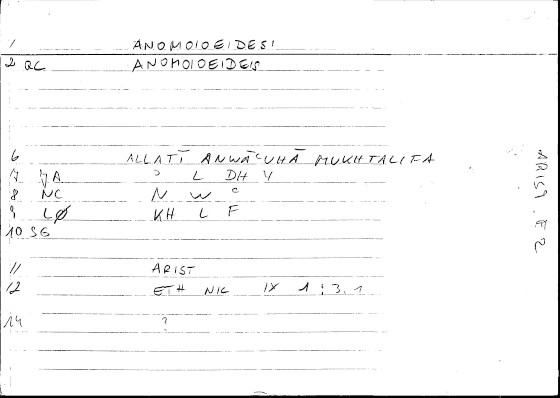 1 ANOMOIOEIDESI
2 QC ANOMOIOEIDEIS
6 ALLATĪ ANWĀʿUHĀ MUKHTALIFA
7 YA ʾ L DH Y
8 NC N W ʿ
9 LØ KH L F
10 SG
11 ARIST
12 ETH NIC IX 1 : 3.1
14 ?
ARIST. E 2